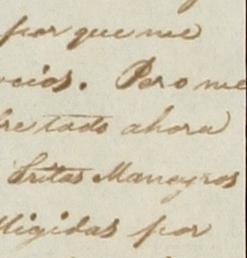 por que me
ocios. Pero me
bre todo ahora
Sritas Maneyros
lligidas por